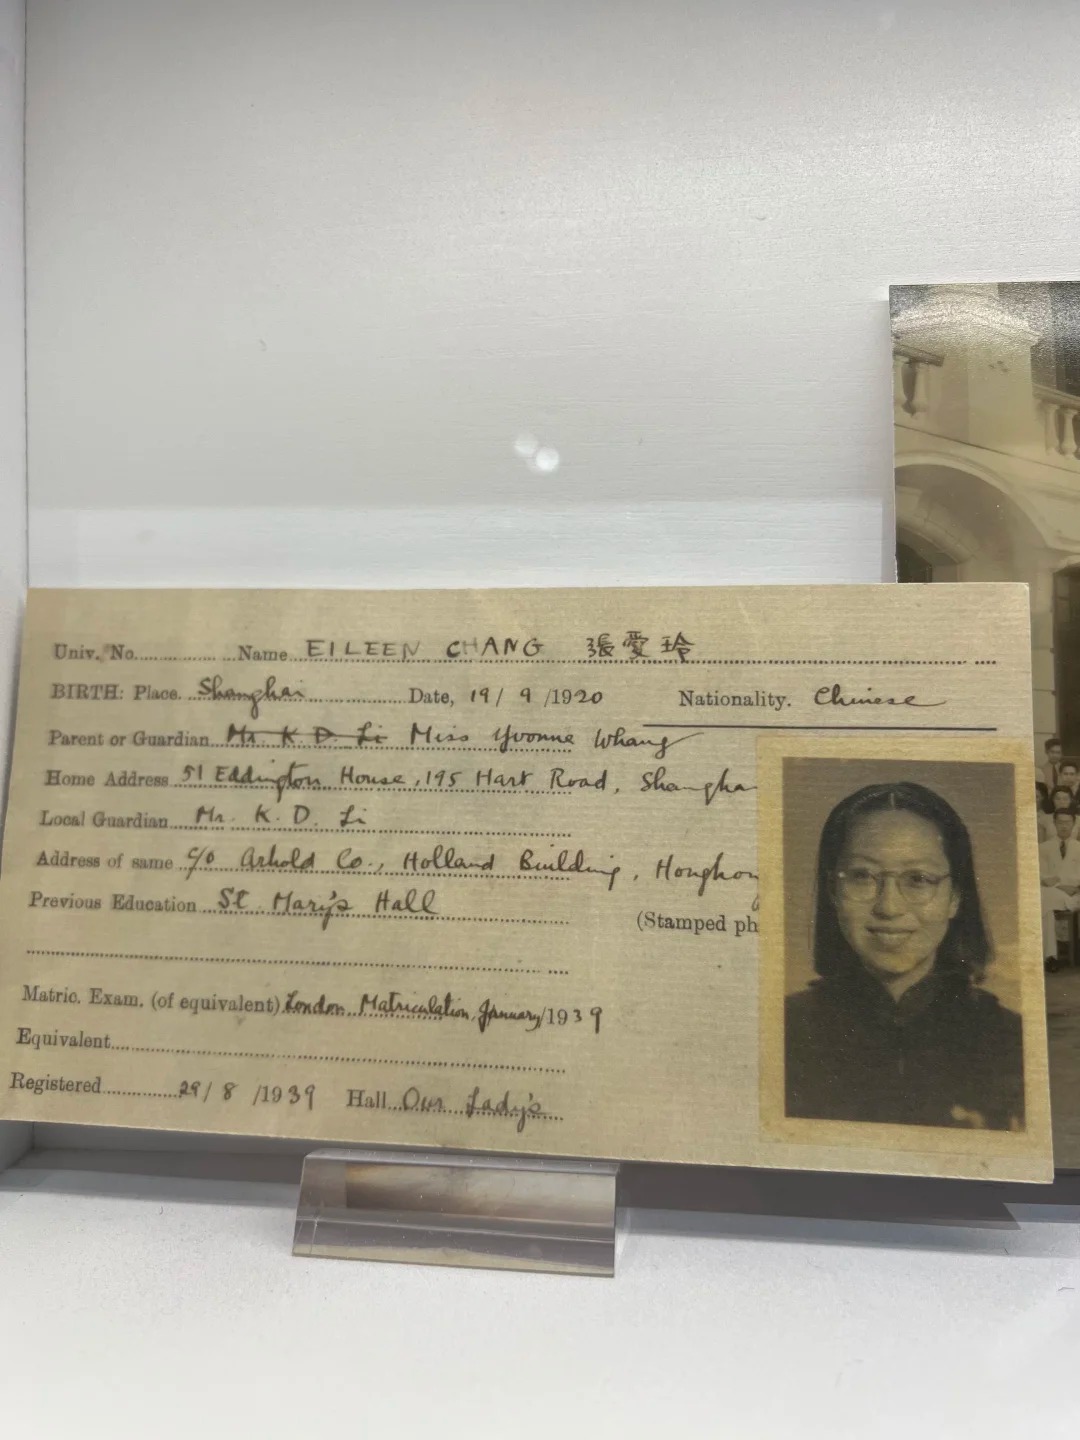 Univ. No. Name EILEEN CHANG 張愛玲
BIRTH: Place. Shanghai Date, 19/ 9 /1920 Nationality. Chinese
Parent or Guardian Mr. K. D. Li Miss Yvonne Whang
Home Address 51 Eddington House, 195 Hart Road, Shangha
Local Guardian Mr. K. D. Li
Address of same c/o Arhold Co., Holland Building, Hongkon
Previous Education St. Mary's Hall
(Stamped ph
Matric. Exam. (of equivalent) London Matriculation, January/1939
Equivalent
Registered 29/ 8 /1939 Hall Our Lady's